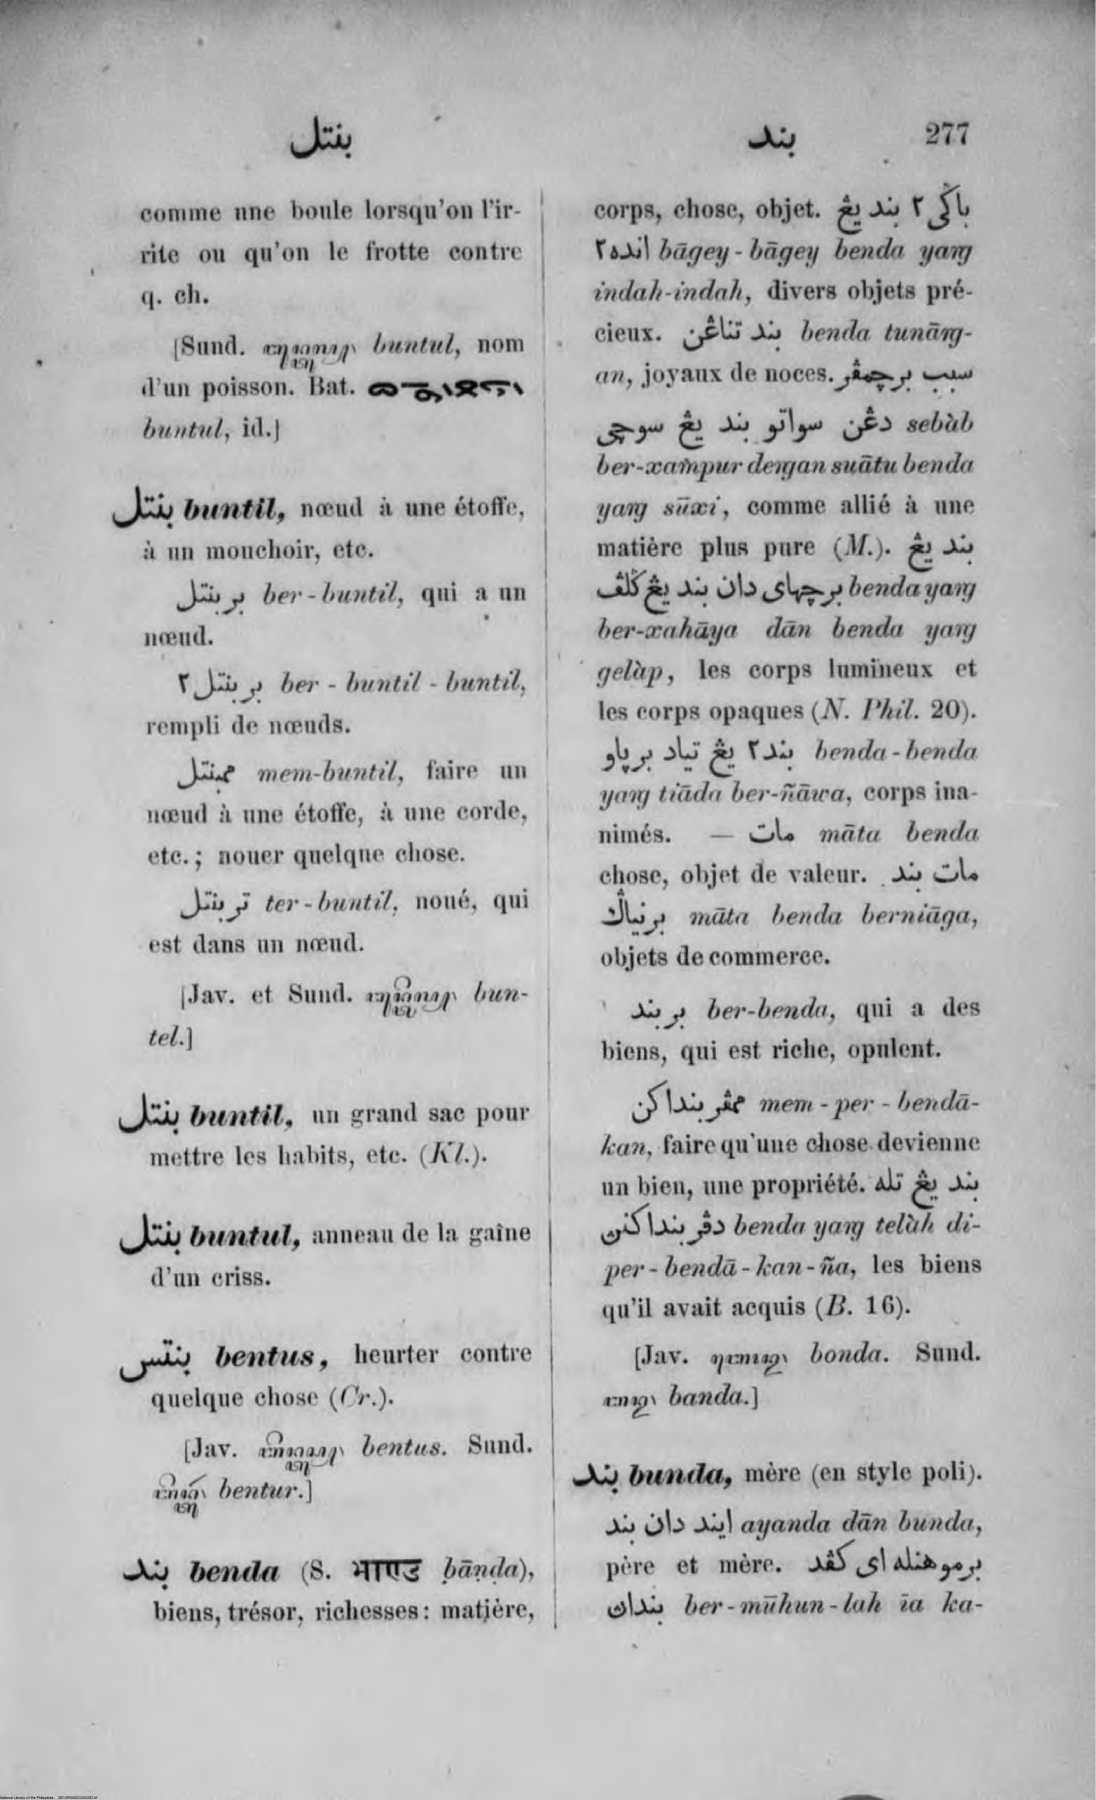 بنتل
بند 277
comme une boule lorsqu'on l'ir-
rite ou qu'on le frotte contre
q. ch.
[Sund. buntul, nom
d'un poisson. Bat.
buntul, id.]
بنتل buntil, nœud à une étoffe,
à un mouchoir, etc.
بربنتل ber-buntil, qui a un
nœud.
بربنتل٢ ber-buntil-buntil,
rempli de nœuds.
ممبنتل mem-buntil, faire un
nœud à une étoffe, à une corde,
etc.; nouer quelque chose.
تربنتل ter-buntil, noué, qui
est dans un nœud.
[Jav. et Sund. bun-
tel.]
بنتل buntil, un grand sac pour
mettre les habits, etc. (Kl.).
بنتل buntul, anneau de la gaîne
d'un criss.
بنتس bentus, heurter contre
quelque chose (Cr.).
[Jav. bentus. Sund.
bentur.]
بند benda (S. भाण्ड bāṇḍa),
biens, trésor, richesses: matière,
corps, chose, objet. باڬى٢ بند يڠ
انده٢ bāgey-bāgey benda yaṅg
indah-indah, divers objets pré-
cieux. بند تناڠن benda tunāṅg-
an, joyaux de noces. سبب برچمڤر
دڠن سواتو بند يڠ سوچى sebàb
ber-xampur deṅgan suātu benda
yaṅg sūxi, comme allié à une
matière plus pure (M.). بند يڠ
برچهاى دان بند يڠ ڬلڤ benda yaṅg
ber-xahāya dān benda yaṅg
gelàp, les corps lumineux et
les corps opaques (N. Phil. 20).
بند٢ يڠ تياد برڽاو benda-benda
yaṅg tiāda ber-ñāwa, corps ina-
nimés. — مات māta benda
chose, objet de valeur. مات بند
برنياڬ māta benda berniāga,
objets de commerce.
بربند ber-benda, qui a des
biens, qui est riche, opulent.
ممڤربنداكن mem-per-bendā-
kan, faire qu'une chose devienne
un bien, une propriété. بند يڠ تله
دڤربنداكنڽ benda yaṅg telàh di-
per-bendā-kan-ña, les biens
qu'il avait acquis (B. 16).
[Jav. bonda. Sund.
banda.]
بند bunda, mère (en style poli).
ايند دان بند ayanda dān bunda,
père et mère. برموهنله اى كڤد
بنداڽ ber-mūhun-lah īa ka-